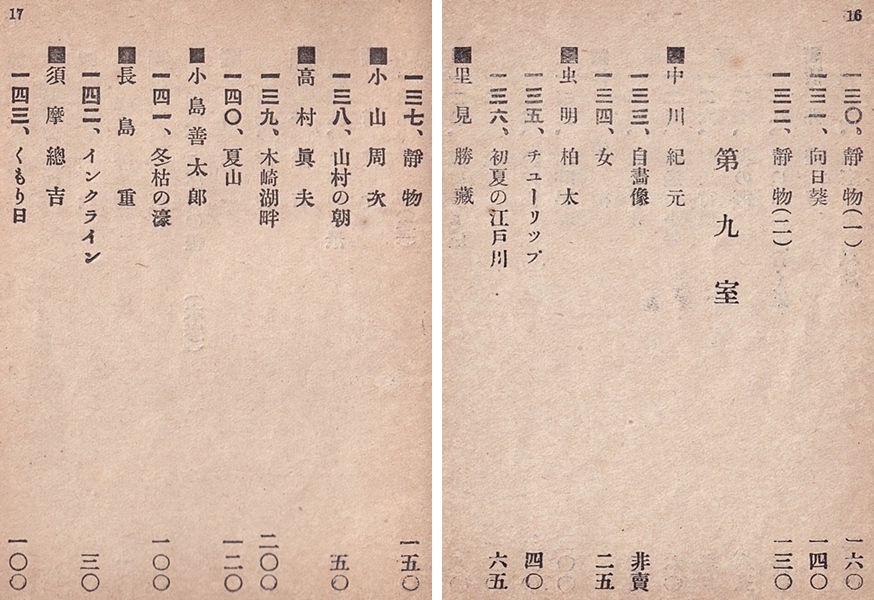 16
一三〇、靜物(一) 一六〇
一三一、向日葵 一四〇
一三二、靜物(二) 一三〇
第九室
■中川紀元
一三三、自畫像 非賣
一三四、女 二五
■虫明柏太
一三五、チューリップ 四〇
一三六、初夏の江戸川 六五
■里見勝藏
17
一三七、靜物 一五〇
■小山周次
一三八、山村の朝 五〇
■高村眞夫
一三九、木崎湖畔 二〇〇
一四〇、夏山 一二〇
■小島善太郎
一四一、冬枯の濠 一〇〇
■長島重
一四二、インクライン 三〇
■須摩總吉
一四三、くもり日 一〇〇